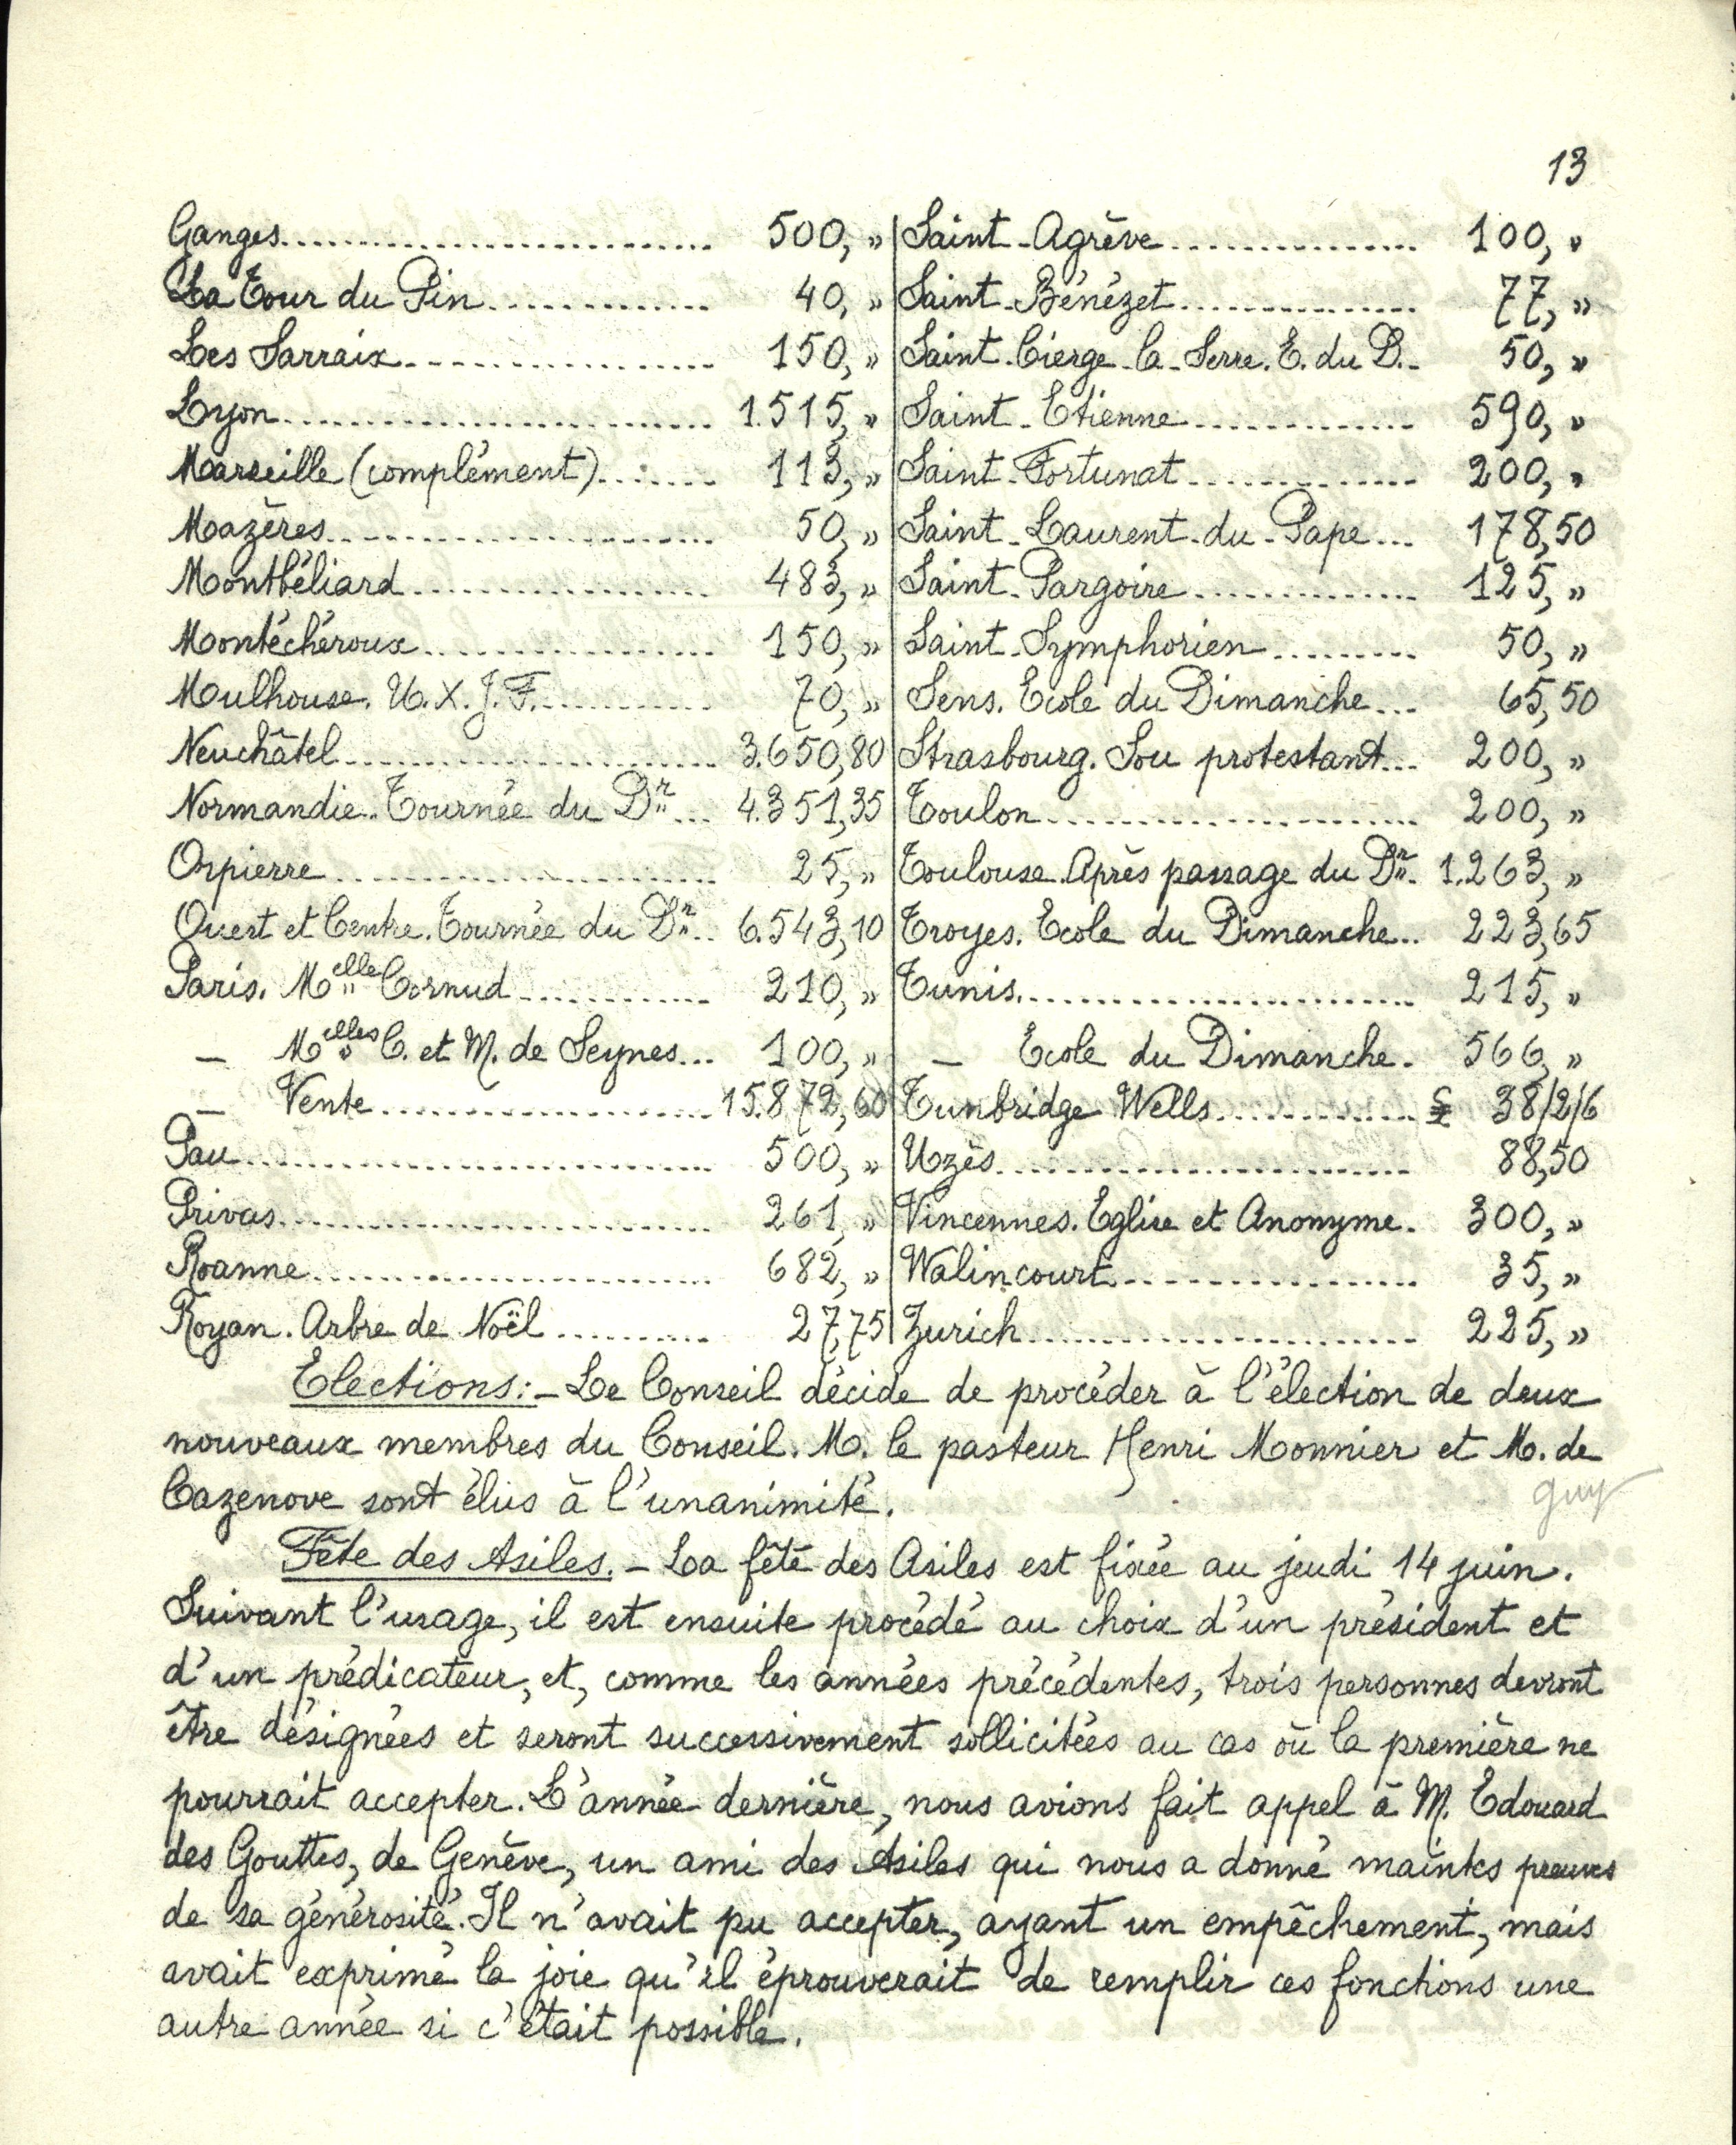 13
Ganges........................... 500, "
La Tour du Pin.............. 40, "
Les Sarraix.................... 150, "
Lyon........................... 1.515, "
Marseille (complément)....... 113, "
Mazères........................ 50, "
Montbéliard................... 483, "
Montéchéroux.................. 150, "
Mulhouse. U.X.J.F............ 70, "
Neuchâtel...................... 3.650,80
Normandie. Tournée du Dr... 4.351,35
Orpierre....................... 25, "
Ouest et Centre. Tournée du Dr.. 6.543,10
Paris. Melle Cornud............ 210, "
– Melles C. et M. de Seynes... 100, "
– Vente...................... 15.872,60
Pau............................. 500, "
Privas.......................... 261, "
Roanne......................... 682, "
Royan. Arbre de Noël.......... 27,75
Saint-Agrève................ 100, "
Saint-Bénézet............... 77, "
Saint-Cierge-la-Serre. E. du D.. 50, "
Saint-Etienne.............. 590, "
Saint-Fortunat.............. 200, "
Saint-Laurent-du-Pape... 178,50
Saint-Pargoire.............. 125, "
Saint-Symphorien......... 50, "
Sens. Ecole du Dimanche... 65,50
Strasbourg. Sou protestant... 200, "
Toulon........................ 200, "
Toulouse. Après passage du Dr. 1.263, "
Troyes. Ecole du Dimanche... 223,65
Tunis......................... 215, "
– Ecole du Dimanche. 566, "
Tunbridge Wells............. £ 38/2/6
Uzès........................... 88,50
Vincennes. Eglise et Anonyme. 300, "
Walincourt................... 35, "
Zurich......................... 225, "
Elections:– Le Conseil décide de procéder à l'élection de deux
nouveaux membres du Conseil. M. le pasteur Henri Monnier et M. de
Cazenove sont élus à l'unanimité.
guy
Fête des Asiles.– La fête des Asiles est fixée au jeudi 14 juin.
Suivant l'usage, il est ensuite procédé au choix d'un président et
d'un prédicateur, et, comme les années précédentes, trois personnes devront
être désignées et seront successivement sollicitées au cas où la première ne
pourrait accepter. L'année dernière, nous avions fait appel à M. Edouard
des Gouttes, de Genève, un ami des Asiles qui nous a donné maintes preuves
de sa générosité. Il n'avait pu accepter, ayant un empêchement, mais
avait exprimé la joie qu'il éprouverait de remplir ces fonctions une
autre année si c'était possible.